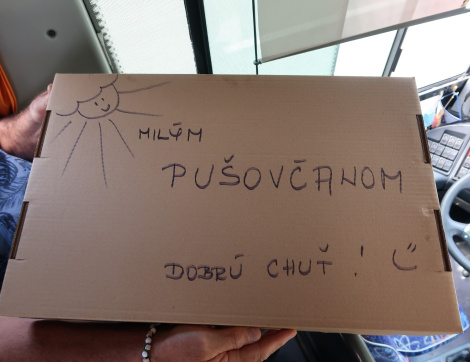 MILÝM
PUŠOVČANOM
DOBRÚ CHUŤ! :)